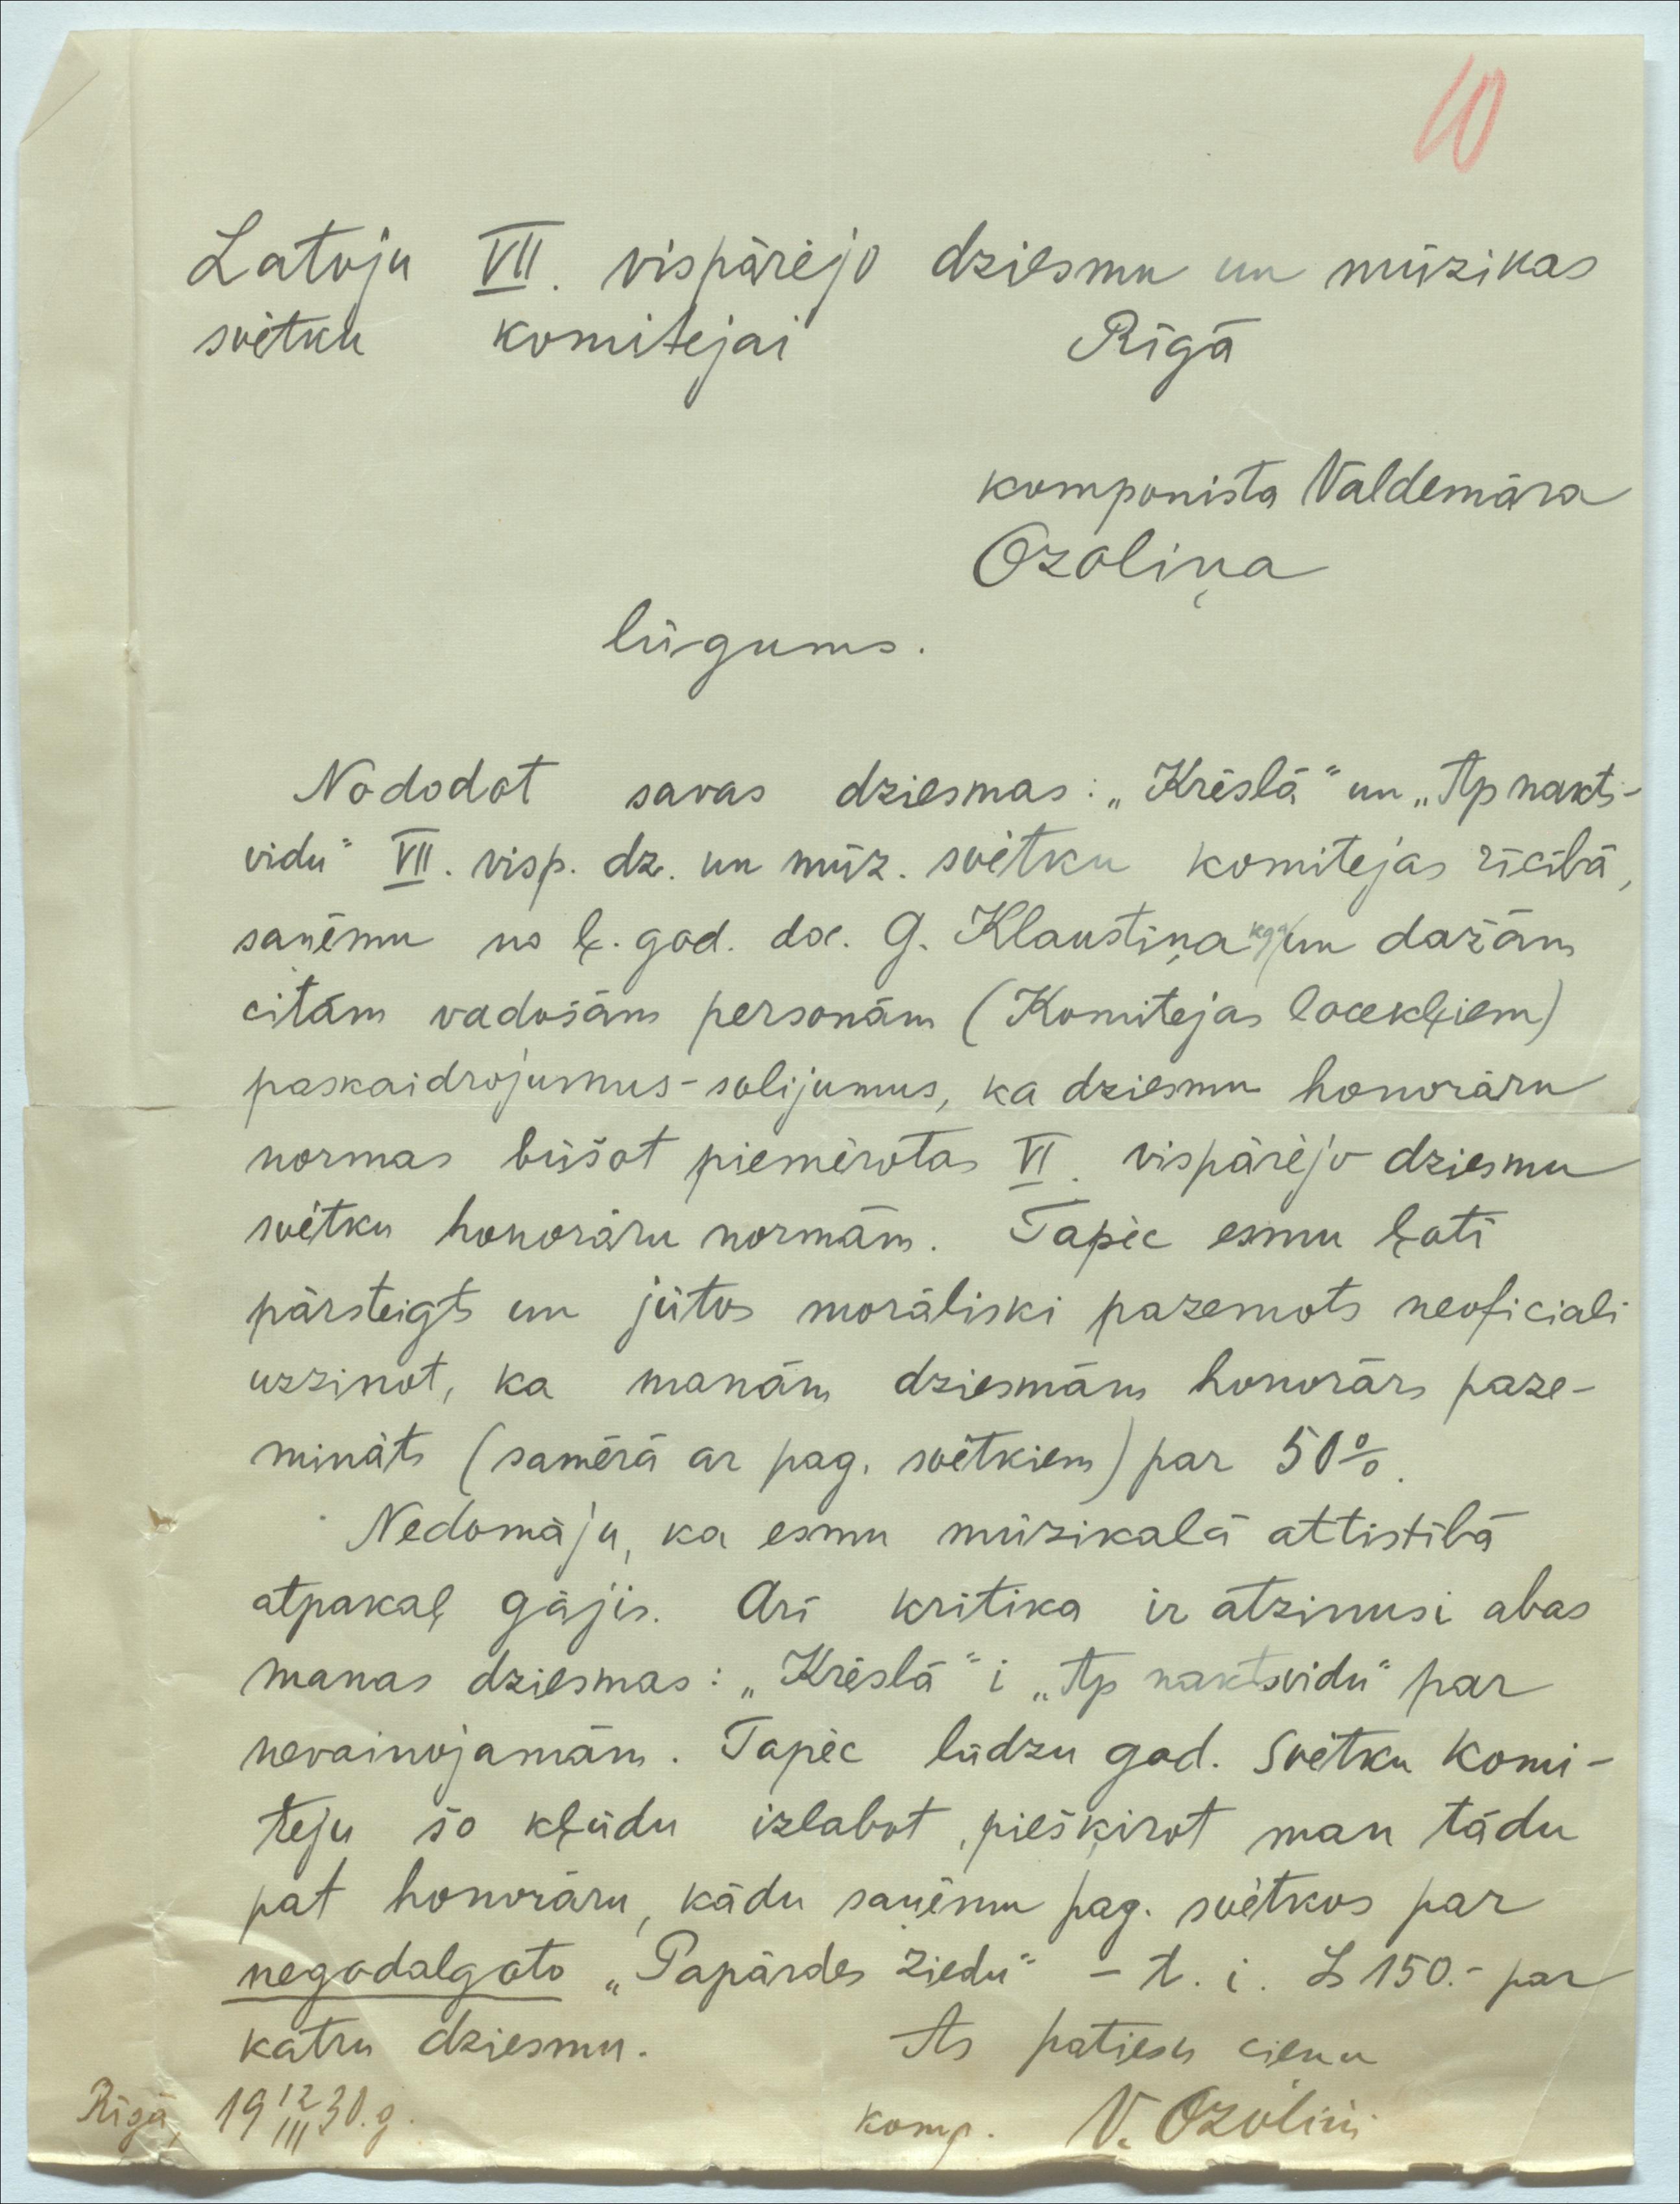 10
Latvju VII. vispārējo dziesmu un mūzikas
svētku komitejai Rīgā
komponista Valdemāra
Ozoliņa
lūgums.
Nododot savas dziesmas: „Krēslā" un „Ap nakts-
vidu" VII. visp. dz. un mūz. svētku komitejas rīcībā,
saņēmu no ļ. god. doc. G. Klaustiņa kga un dažām
citām vadošām personām (Komitejas locekļiem)
paskaidrojumus-solijumus, ka dziesmu honorāru
normas būšot piemērotas VI. vispārējo dziesmu
svētku honorāru normām. Tapēc esmu ļoti
pārsteigts un jūtos morāliski pazemots neoficiali
uzzinot, ka manām dziesmām honorārs paze-
mināts (samērā ar pag. svētkiem) par 50%.
Nedomāju, ka esmu mūzikalā attistībā
atpakaļ gājis. Arī kritika ir atzinusi abas
manas dziesmas: „Krēslā" i „Ap naktsvidu" par
nevainojamām. Tapēc lūdzu god. Svētku Komi-
teju šo kļūdu izlabot, piešķirot man tādu
pat honorāru, kādu saņēmu pag. svētkos par
negodalgoto „Papārdes ziedu" - t. i. Ls 150.- par
katru dziesmu. Ar patiesu cieņu
Rīgā, 19 12/III 30. g. komp. V. Ozoliņ